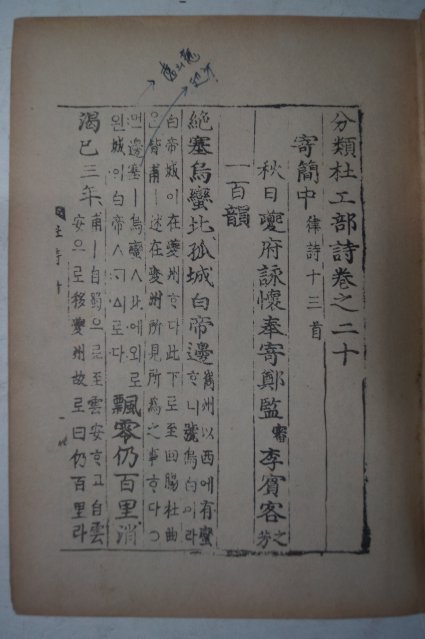 分類杜工部詩卷之二十
寄簡中 律詩十三首
秋日夔府詠懷奉寄鄭監審李賓客之芳
一百韻
絶塞烏蠻北孤城白帝邊 嶲州以西에有蠻ᄒᆞ니號烏白이라
白帝城이在夔州ᄒᆞ다此下로至回腸杜曲은皆甫ㅣ述在夔州所見所爲之事ᄒᆞ다ㅇ
먼邊塞ㅣ烏蠻ㅅ北에외로왼城이白帝ㅅᄀᆞᅀᅵ로다 飄零仍百里消
渴已三年 甫ㅣ自蜀으로至雲安ᄒᆞ고自雲安으로移夔州故로曰仍百里라